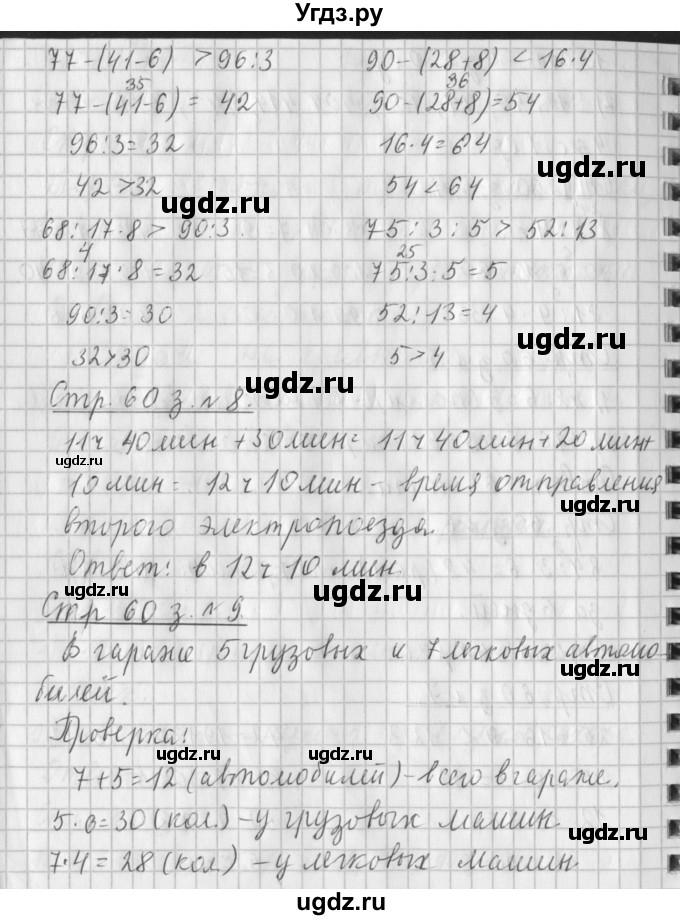 Угдз.ру
77-(41-6) > 96:3
90-(28+8) < 16·4
35
77-(41-6) = 42
36
90-(28+8)=54
96:3=32
16·4=64
ugdz.ru
42>32
54<64
ugdz.ru
68:17·8 > 90:3
75:3:5 > 52:13
4
68:17·8=32
25
75:3:5=5
90:3=30
52:13=4
ugdz.ru
32>30
5>4
ugdz.ru
Стр. 60 з. №8.
11ч 40мин +30мин= 11ч 40мин+20мин+
ugdz.ru
10мин= 12ч 10мин - время отправления
ugdz.ru
второго электропоезда.
Ответ: в 12ч 10 мин.
ugdz.ru
ugdz.ru
Стр 60 з. №9.
В гараже 5 грузовых и 7 легковых автомо-
ugdz.ru
билей.
Проверка:
ugdz.ru
ugdz.ru
7+5=12 (автомобилей)-всего в гараже.
5·6=30 (кол.) -у грузовых машин
ugdz.ru
7·4=28 (кол) -у легковых машин
ugdz.ru
ugdz.ru